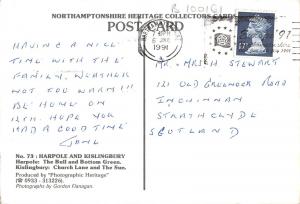 B 100161
NORTHAMPTONSHIRE HERITAGE COLLECTORS CARD
POST CARD
1991
17
HAVING A NICE
TIME WITH THE
FAMILY. WEATHER
NOT TOO WARM!!
BE HOME ON
12TH. HOPE YOU
HAD A GOOD TIME
MR. M R I STEWART
121 OLD GREENOCK ROAD
INCHINNAN
STRATHCLYDE
SCOTLAND
No. 73: HARPOLE AND KISLINGBURY
Harpole: The Bull and Bottom Green.
Kislingbury: Church Lane and The Sun.
Produced by "Photographic Heritage"
(☎ 0933 - 313226).
Photographs by Gordon Flanagan.